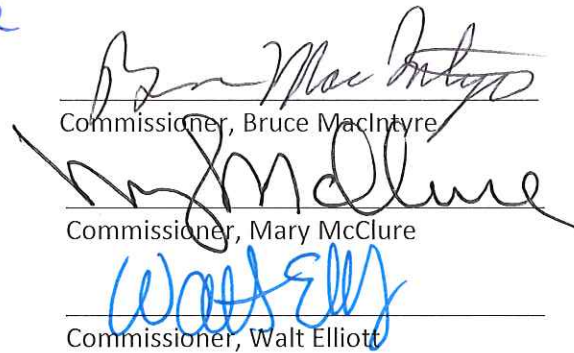 Bruce MacIntyre
Commissioner, Bruce MacIntyre
Mary McClure
Commissioner, Mary McClure
Walt Elliott
Commissioner, Walt Elliott